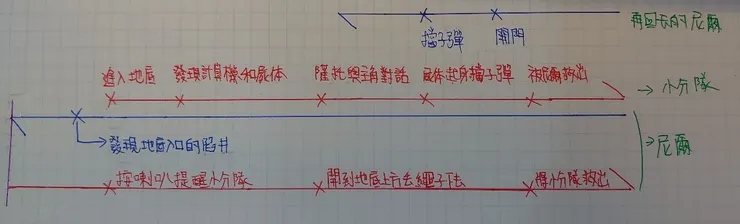 再回去的尼爾
擋子彈 開門
進入地底 發現計算機和屍体 薩托與主角對話 屍体起身擋子彈 被尼爾救出
小分隊
發現地底入口的陷井
尼爾
按喇叭提醒小分隊 開到地底上方丟繩子下去 將小分隊救出